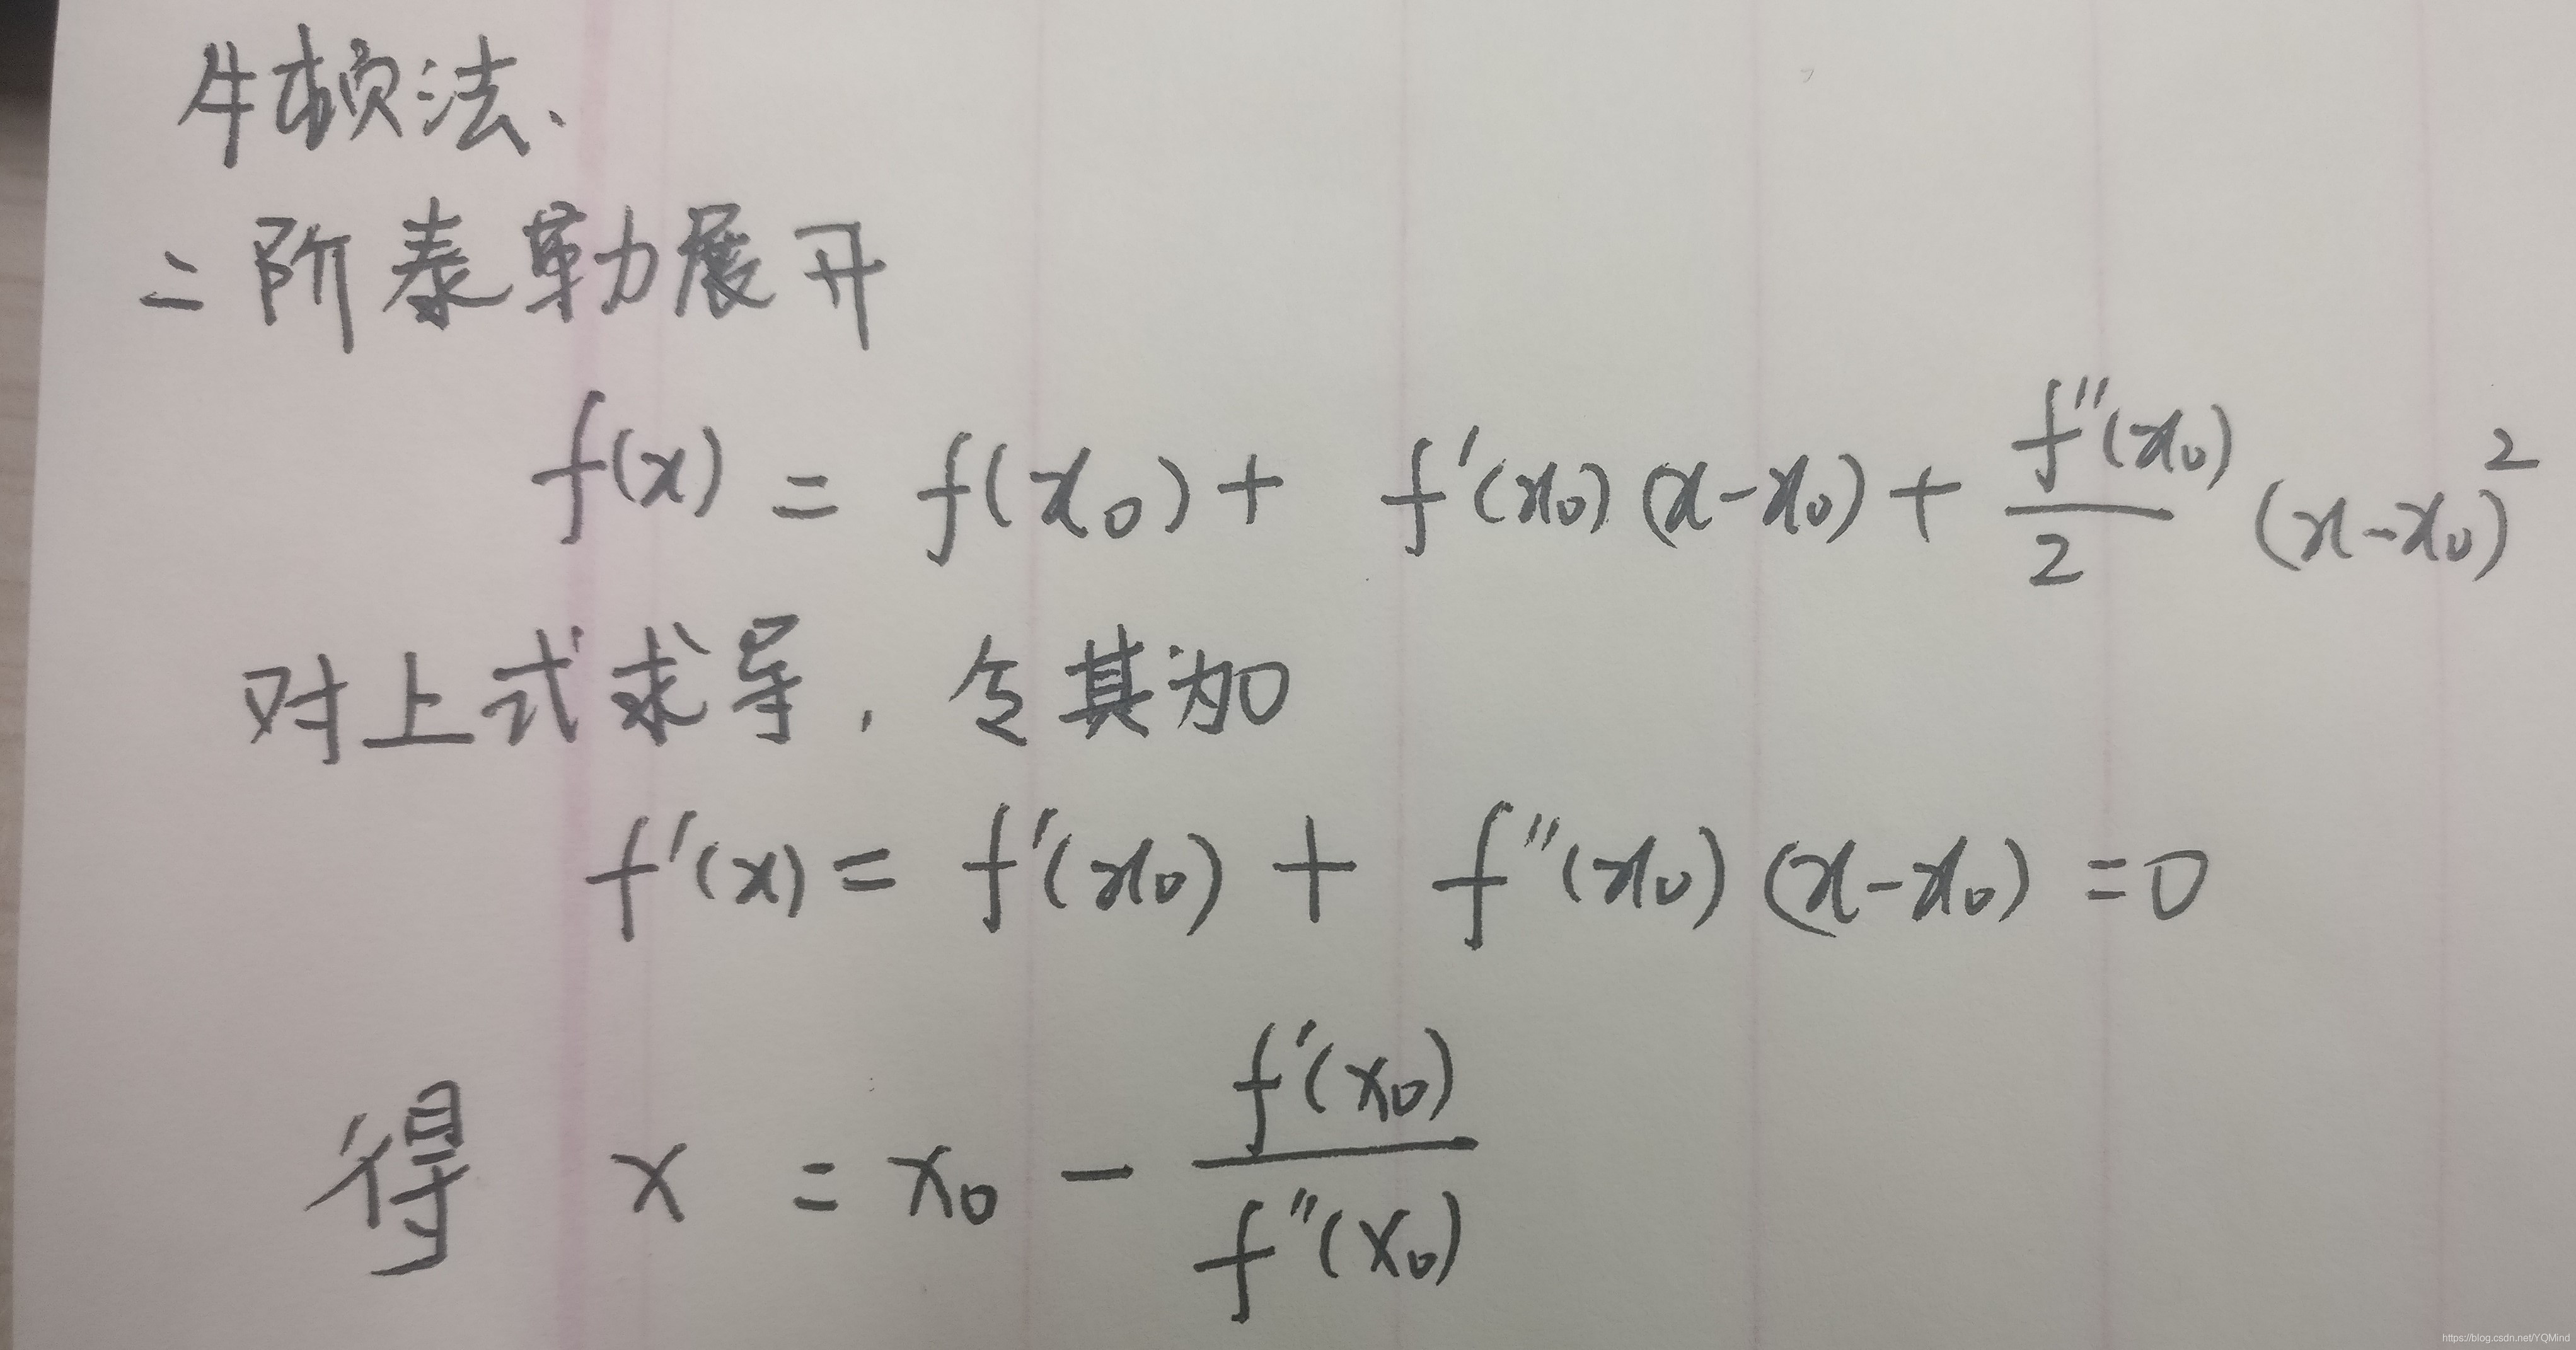 牛顿法、
二阶泰勒展开
f(x) = f(x₀) + f'(x₀)(x-x₀) + f''(x₀)/2 (x-x₀)²
对上式求导，令其为0
f'(x) = f'(x₀) + f''(x₀)(x-x₀) = 0
得 x = x₀ - f'(x₀)/f''(x₀)
https://blog.csdn.net/YQMind